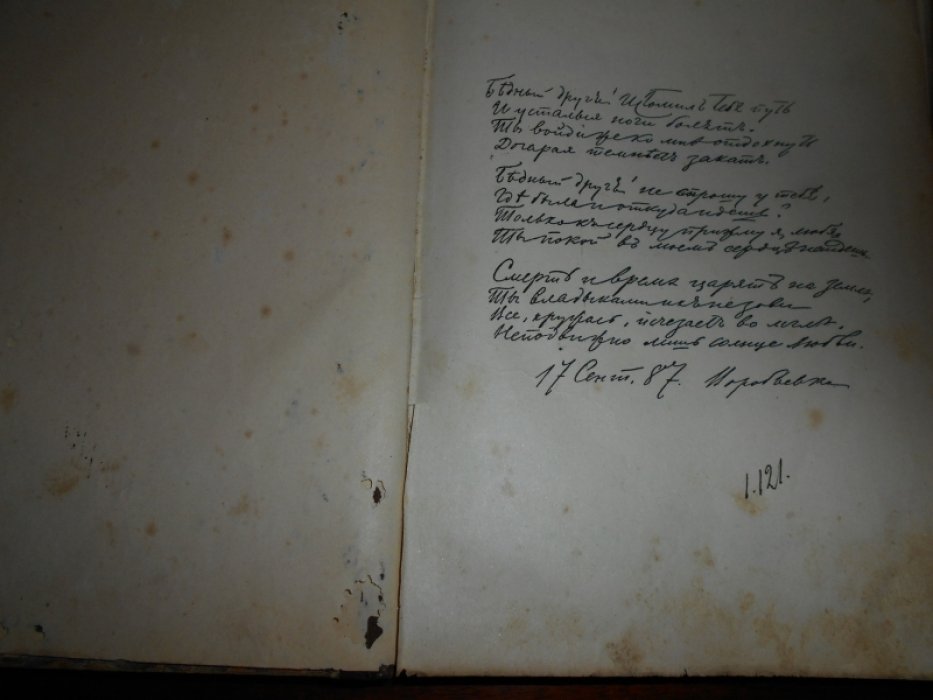 Бѣдный другъ! Истомилъ тебѣ путь
И усталыя ноги болятъ.
Ты войди же ко мнѣ отдохнуть
Догарая темнѣетъ закатъ.
Бѣдный другъ! не спрошу у тебѣ,
Гдѣ была и откуда идешь?
Только къ сердцу прижму я, любя,
Ты покой въ моемъ сердцѣ найдешь.
Смерть и время царятъ на земле,
Ты владыками ихъ не зови
Все, кружась, изчезаетъ во мглѣ.
Неподвижно лишь солнце любви.
17 Сент. 87. Воробьевка
1.121.